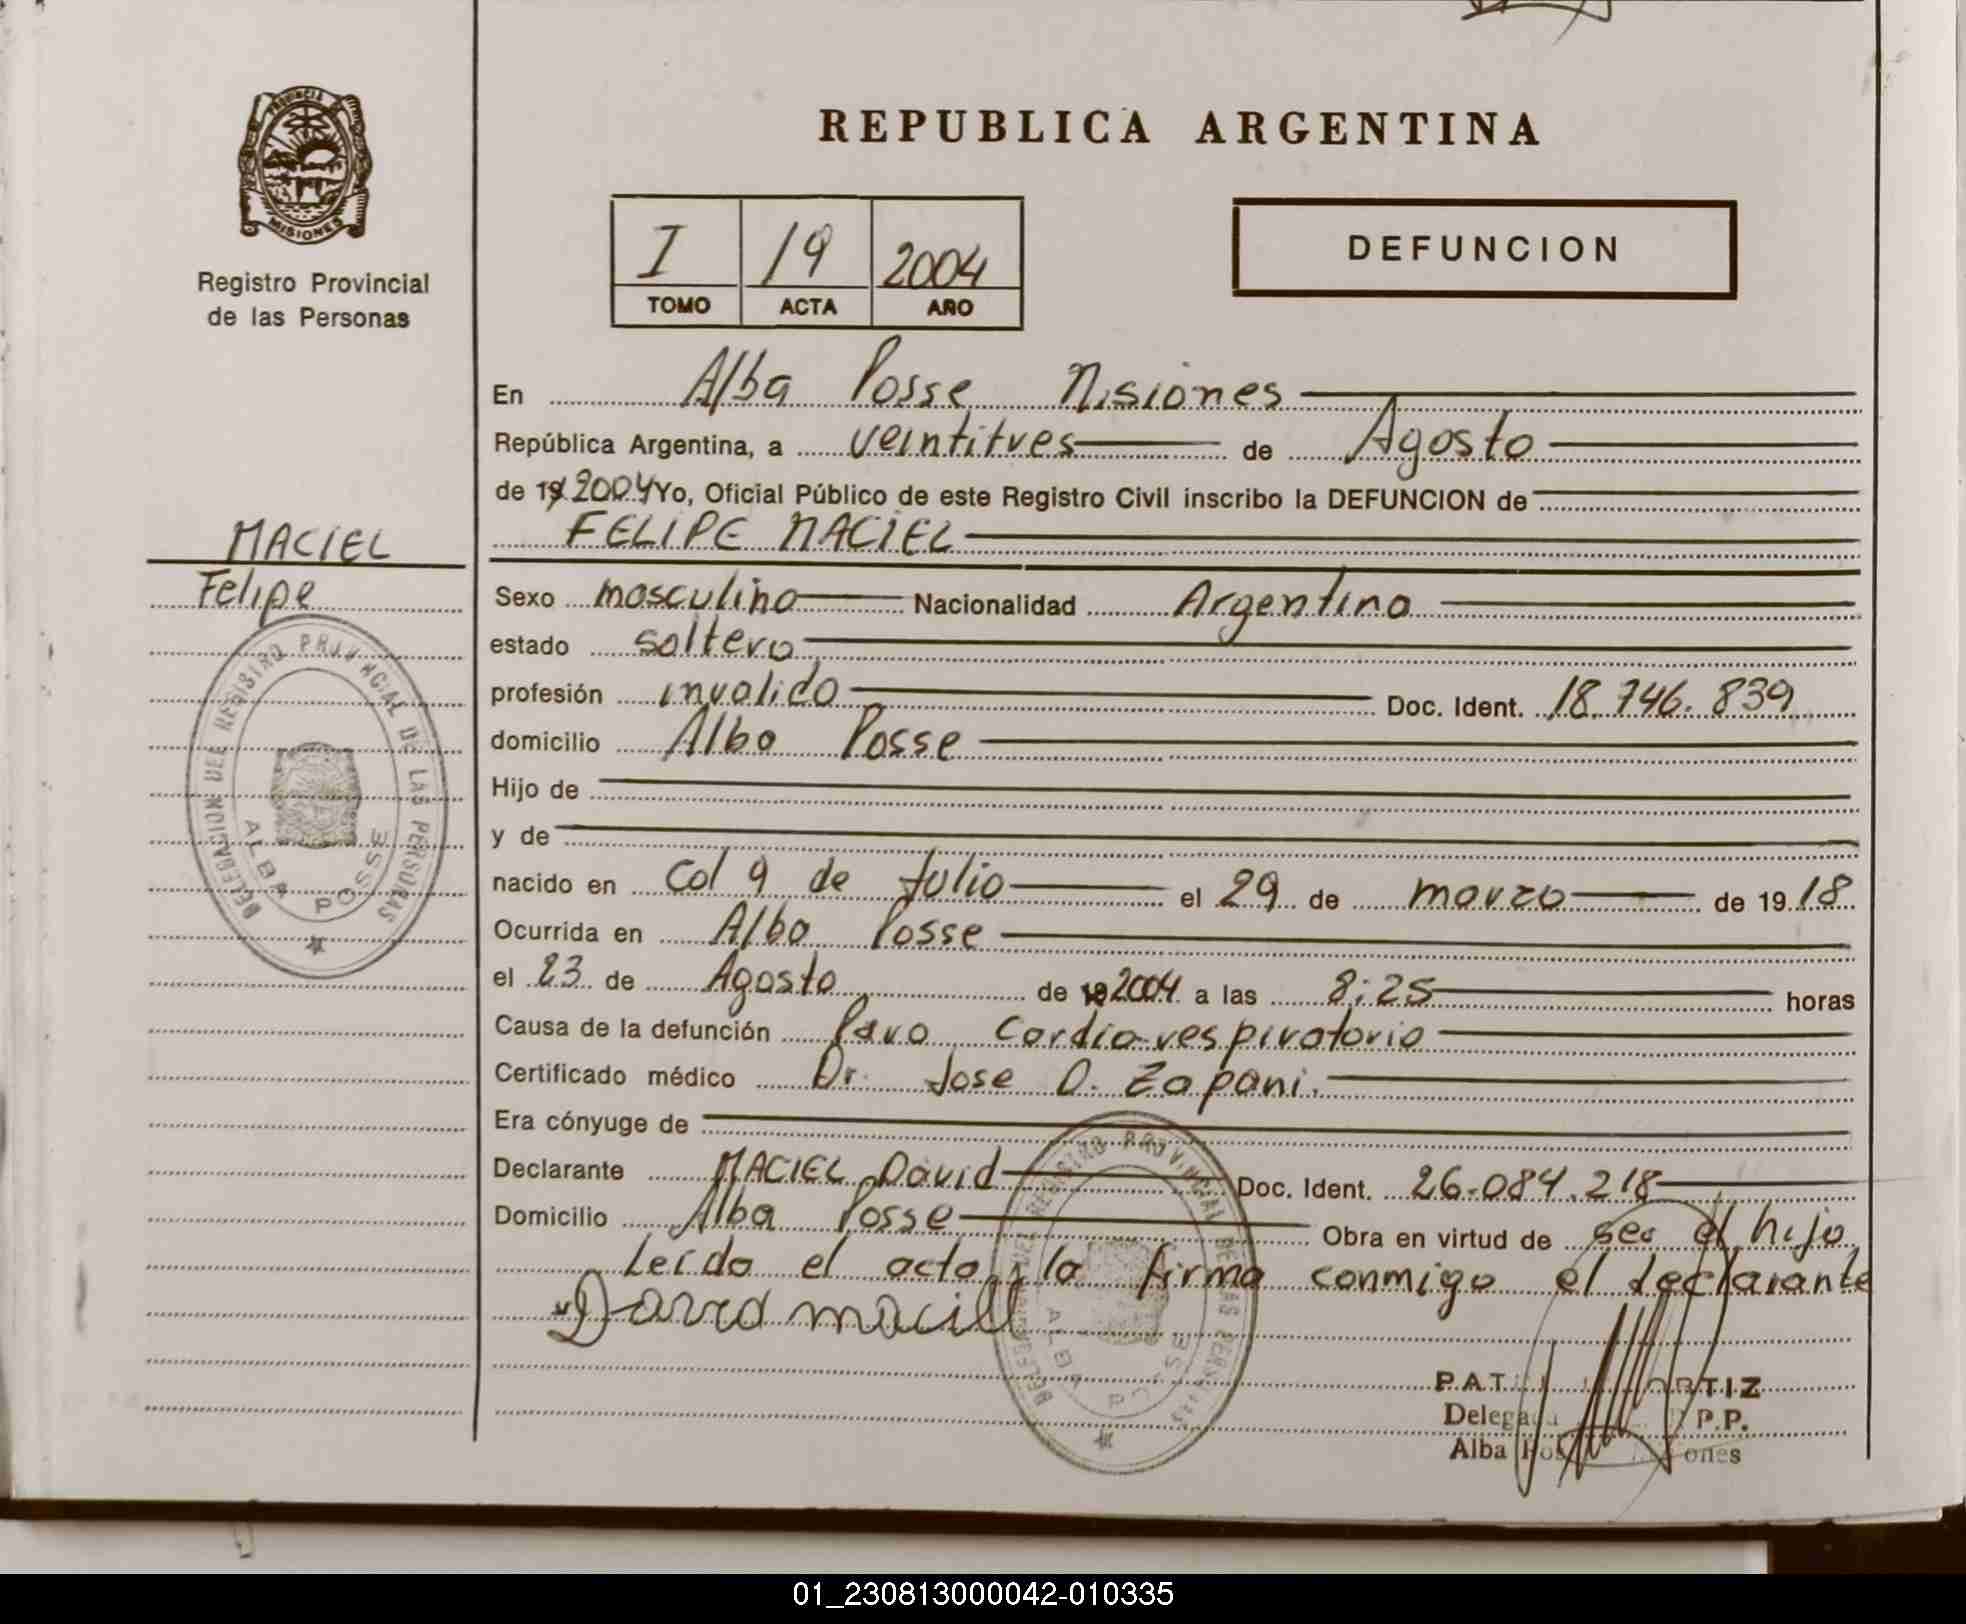 PROVINCIA DE
MISIONES
Registro Provincial
de las Personas
REPUBLICA ARGENTINA
I 19 2004
TOMO ACTA AÑO
DEFUNCION
En Alba Posse Misiones
República Argentina, a veintitres de Agosto
de 19 2004 Yo, Oficial Público de este Registro Civil inscribo la DEFUNCION de
FELIPE MACIEL
MACIEL
Felipe
Sexo masculino Nacionalidad Argentino
estado soltero
profesión invalido Doc. Ident. 18.746.839
domicilio Alba Posse
Hijo de
y de
nacido en Col 9 de Julio el 29 de marzo de 19 18
Ocurrida en Alba Posse
el 23 de Agosto de 19 2004 a las 8:25 horas
Causa de la defunción Paro Cardio-respiratorio
Certificado médico Dr. Jose D. Zapani.
Era cónyuge de
Declarante MACIEL David Doc. Ident. 26.084.218
Domicilio Alba Posse Obra en virtud de ser el hijo
Leido el acta, la firma conmigo el declarante
David maciel
DELEGACION DEL REGISTRO PROVINCIAL DE LAS PERSONAS
ALBA POSSE
DELEGACION DEL REGISTRO PROVINCIAL DE LAS PERSONAS
ALBA POSSE
ORTIZ
P.P.
Alba
01_230813000042-010335